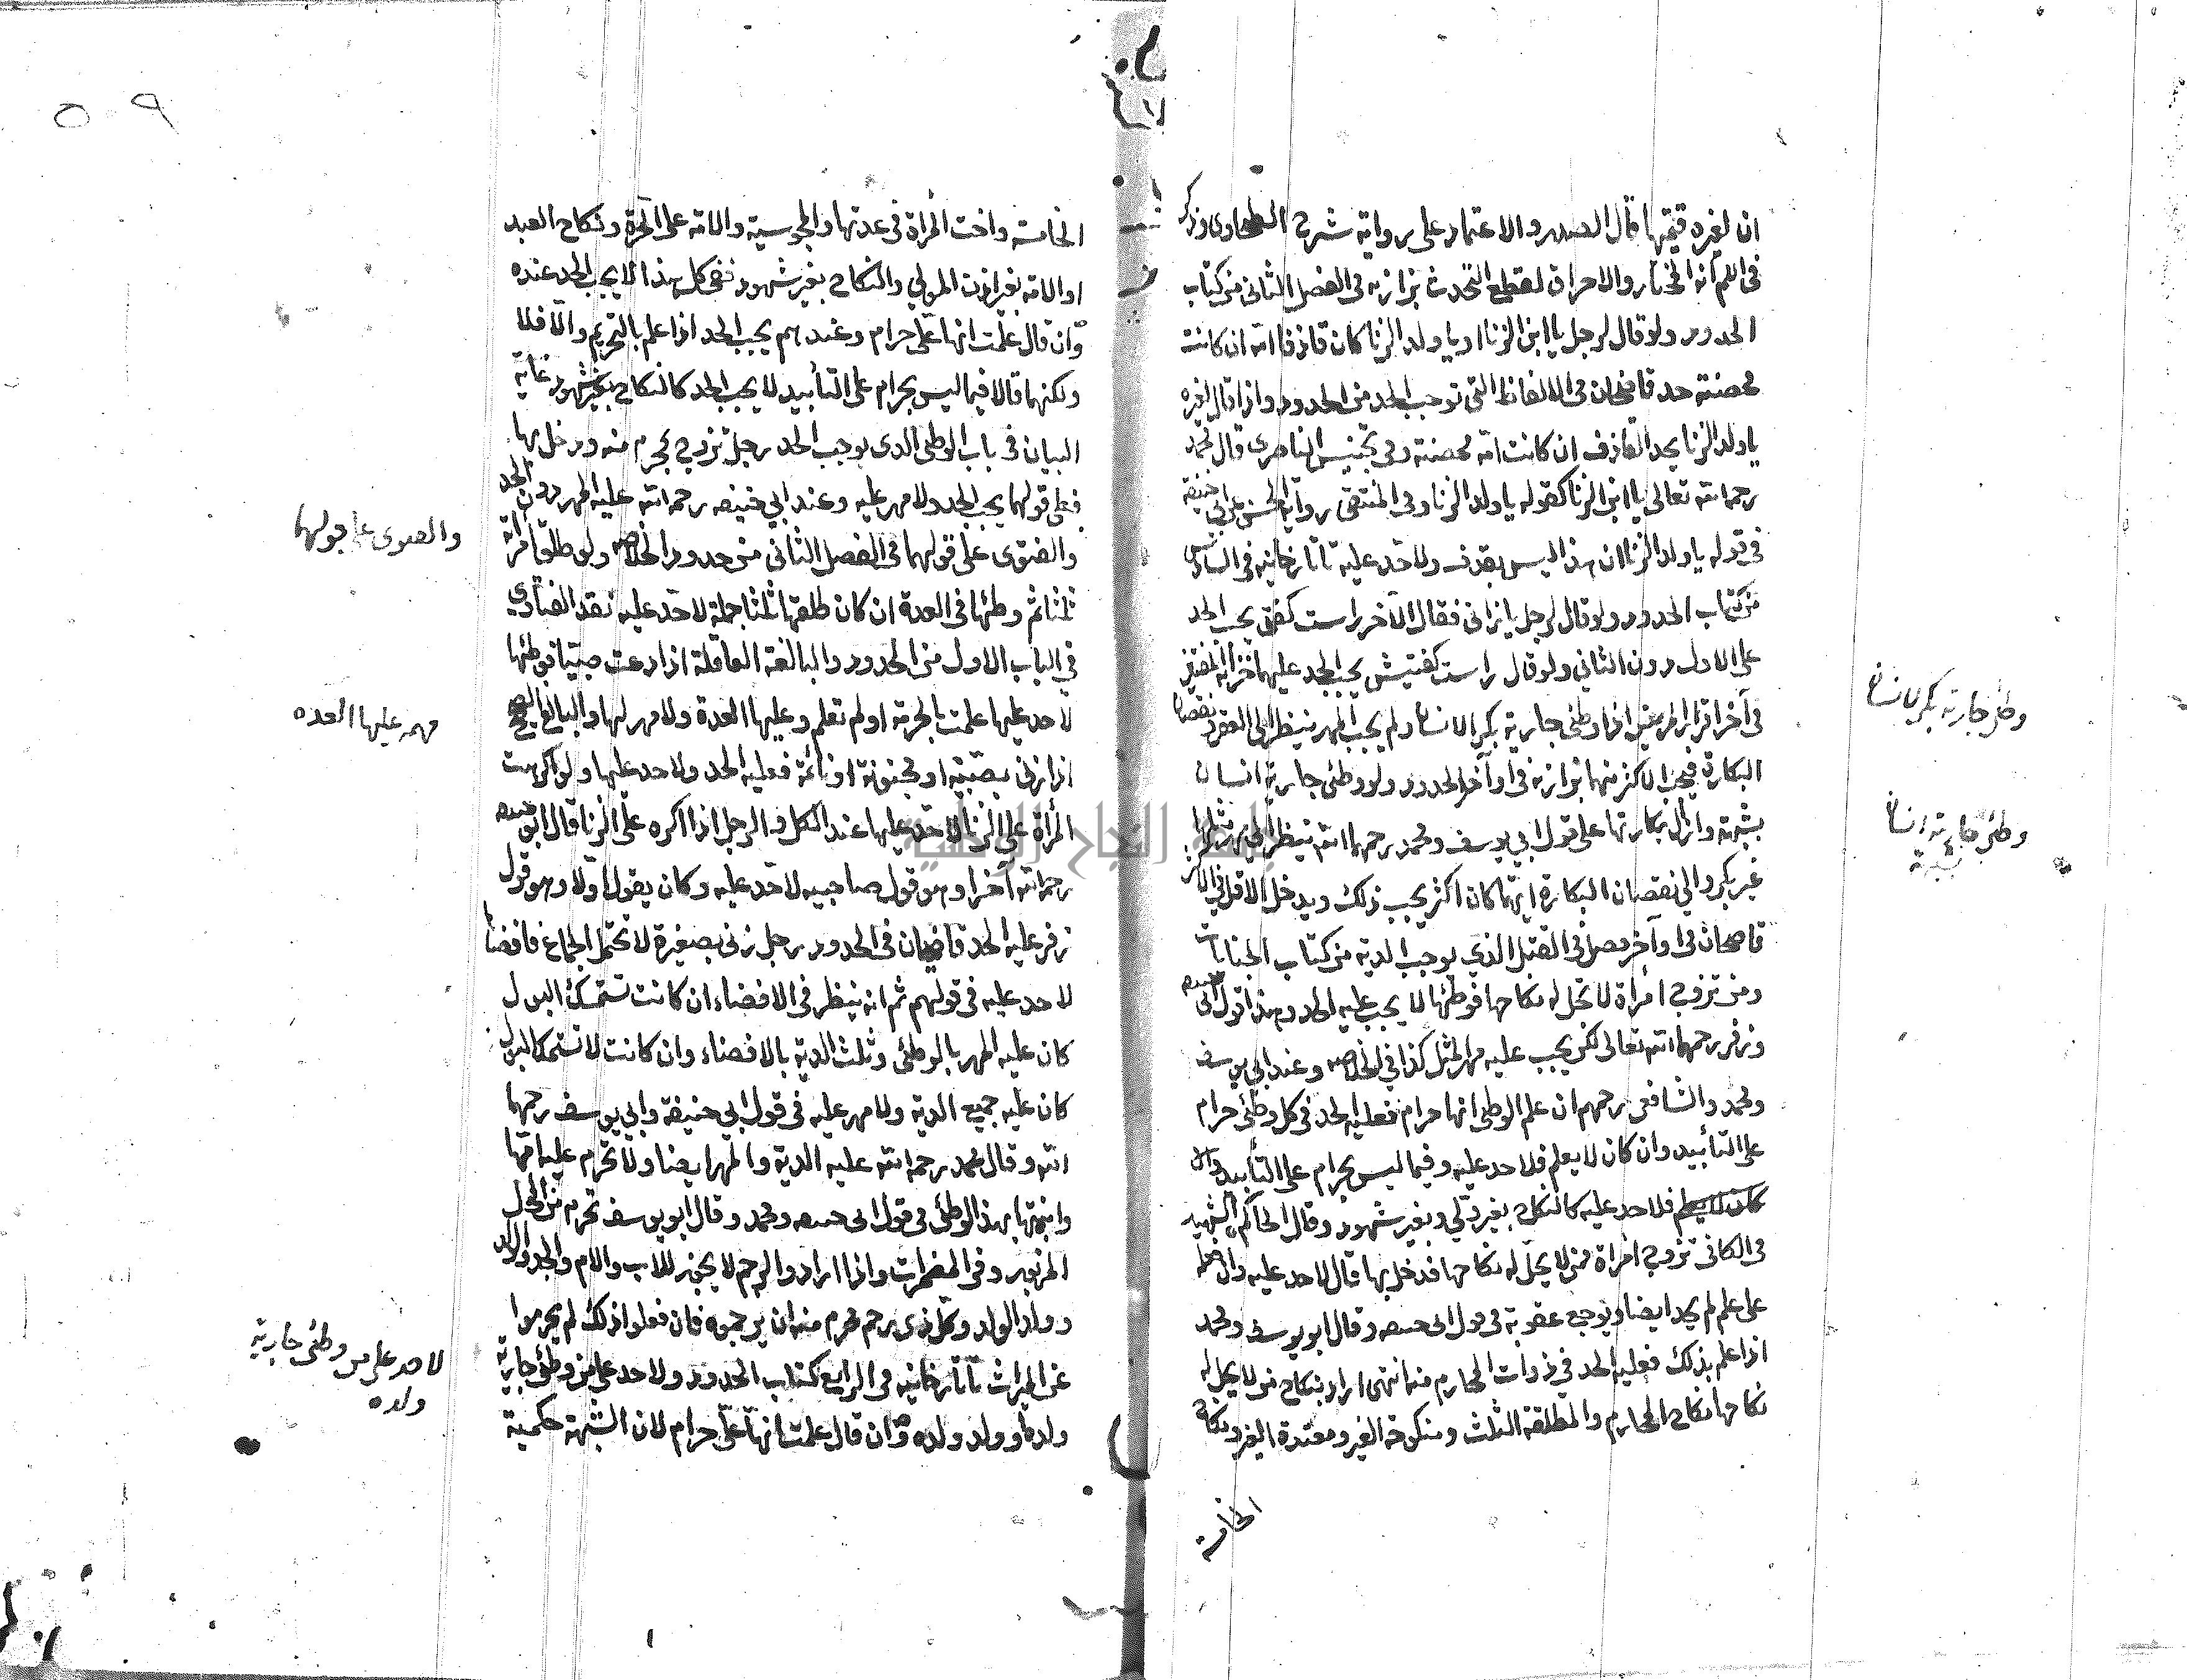 ان لغيره قيمتها قال الصدر والاعتماد على رواية شرح الطحاوى وذكر
فى اللم انه الخيار والاحراق لقطع التحدث بزازيه فى الفصل الثانى من كتاب
الحدود ولو قال لرجل يا ابن الزنا او يا ولد الزنا كان قاذفا امه ان كانت
محصنة حد قاضيخان فى الالفاظ التى توجب الحد من الحدود واذا قال لغيره
يا ولد الزنا يحد القاذف ان كانت امه محصنة وفى تجنيس الناصرى قال محمد
رحمه الله تعالى يا ابن الزنا كقوله يا ولد الزنا وفى المنتقى رواية الحسن عن ابى حنيفة
فى قوله يا ولد الزنا ان هذا ليس بقذف ولا حد عليه تاتارخانيه فى السادس
من كتاب الحدود ولو قال لرجل يا زانى فقال الآخر راست كفتى يجب الحد
على الاول دون الثانى ولو قال راست كفتيش يجب الحد عليهما خزانة المفتين
فى آخر اقرار المريض اذا وطئ جارية بكر الانسان ولم يجب المهر ينظر الى العقر ونقصان
البكارة فيجب الاكثر منهما بزازيه فى اواخر الحدود ولو وطئ جارية انسان
بشبهة وازال بكارتها على قول ابى يوسف ومحمد رحمهما الله ينظر الى مهر مثلها
غير بكر والى نقصان البكارة ايهما كان اكثر يجب ذلك ويدخل الاقل فى الاكثر
قاضيخان فى اواخر فصل فى القتل الذى يوجب الدية من كتاب الجنايات
ومن تزوج امرأة لا تحل له نكاحها فوطئها لا يجب عليه الحد وهذا قول ابى حنيفه
وزفر رحمهما الله تعالى لكن يجب عليه مهر المثل كذا فى الخلاصه وعند ابى يوسف
ومحمد والشافعى رحمهم ان علم الوطى انها حرام فعليه الحد فى كل وطئ حرام
على التأبيد وان كان لا يعلم فلا حد عليه وفيما ليس بحرام على التأبيد وان
كان لا يعلم فلا حد عليه كالنكاح بغير ولى وبغير شهود وقال الحاكم الشهيد
فى الكافى تزوج امرأة ممن لا يحل له نكاحها فدخل بها قال لا حد عليه وان فعله
على علم لم يحد ايضا ويوجع عقوبة فى قول ابى حنيفه وقال ابو يوسف ومحمد
اذا علم بذلك فعليه الحد فى ذوات المحارم منه انتهى اراد بنكاح من لا يحل له
نكاحها نكاح المحارم والمطلقة الثلث ومنكوحة الغير ومعتدة الغير ونكاح
الخامسة
وطئ جارية بكر لانسان
وطئ جارية انسان
بشبهة
٥٠٩
الخامسة واخت المرأة فى عدتها والمجوسية والامة على الحرة ونكاح العبد
او الامة بغير اذن المولى والنكاح بغير شهود ففى كل هذا لا يجب الحد عنده
وان قال علمت انها على حرام وعندهم يجب الحد اذا علم بالتحريم والا فلا
ولكنهما قالا فيما ليس بحرام على التأبيد لا يجب الحد كالنكاح بغير شهود غاية
البيان فى باب الوطئ الذى يوجب الحد رجل تزوج بمحرم منه ودخل بها
فعلى قولهما يجب الحد ولا مهر عليه وعند ابى حنيفه رحمه الله عليه المهر دون الحد
والفتوى على قولهما فى الفصل الثانى من حدود الخلاصه ولو طلق امرأته
ثلثا ثم وطئها فى العدة ان كان طلقها ثلثا جملة لا حد عليه نقد الفتاوى
فى الباب الاول من الحدود والبالغة العاقلة اذا دعت صبيا فوطئها
لا حد عليها علمت بالحرمة او لم تعلم وعليها العدة ولا مهر لها والبالغ الصحيح
اذا زنى بصبية او مجنونة او نائمة فعليه الحد ولا حد عليها ولو اكرهت
المرأة على الزنا لا حد عليها عند الكل والرجل اذا اكره على الزنا قال ابو حنيفه
رحمه الله آخرا وهو قول صاحبيه لا حد عليه وكان يقول اولا وهو قول
زفر عليه الحد قاضيخان فى الحدود رجل زنى بصغيرة لا تحتمل الجماع فافضاها
لا حد عليه فى قولهم ثم انه ينظر فى الافضاء ان كانت تستمسك البول
كان عليه المهر بالوطئ وثلث الدية بالافضاء وان كانت لا تستمسك البول
كان عليه جميع الدية ولا مهر عليه فى قول ابى حنيفة وابى يوسف رحمهما
الله وقال محمد رحمه الله عليه الدية والمهر ايضا ولا تحرم عليه امها
وابنتها بهذا الوطئ فى قول ابى حنيفه ومحمد وقال ابو يوسف تحرم من المحل
المزبور وفى المضمرات واذا اراد والرجم لا يجوز للاب والام والجد والاولاد
وولد الولد وكل ذى رحم محرم منه ان يرجموه فان فعلوا ذلك لم يحرموا
عن الميراث تاتارخانيه فى الرابع كتاب الحدود ولا حد على من وطئ جارية
ولده او ولد ولده وان قال علمت انها على حرام لان الشبهة حكمية
والفتوى على قولهما
مهمه عليها العده
لا حد على من وطئ جارية
ولده